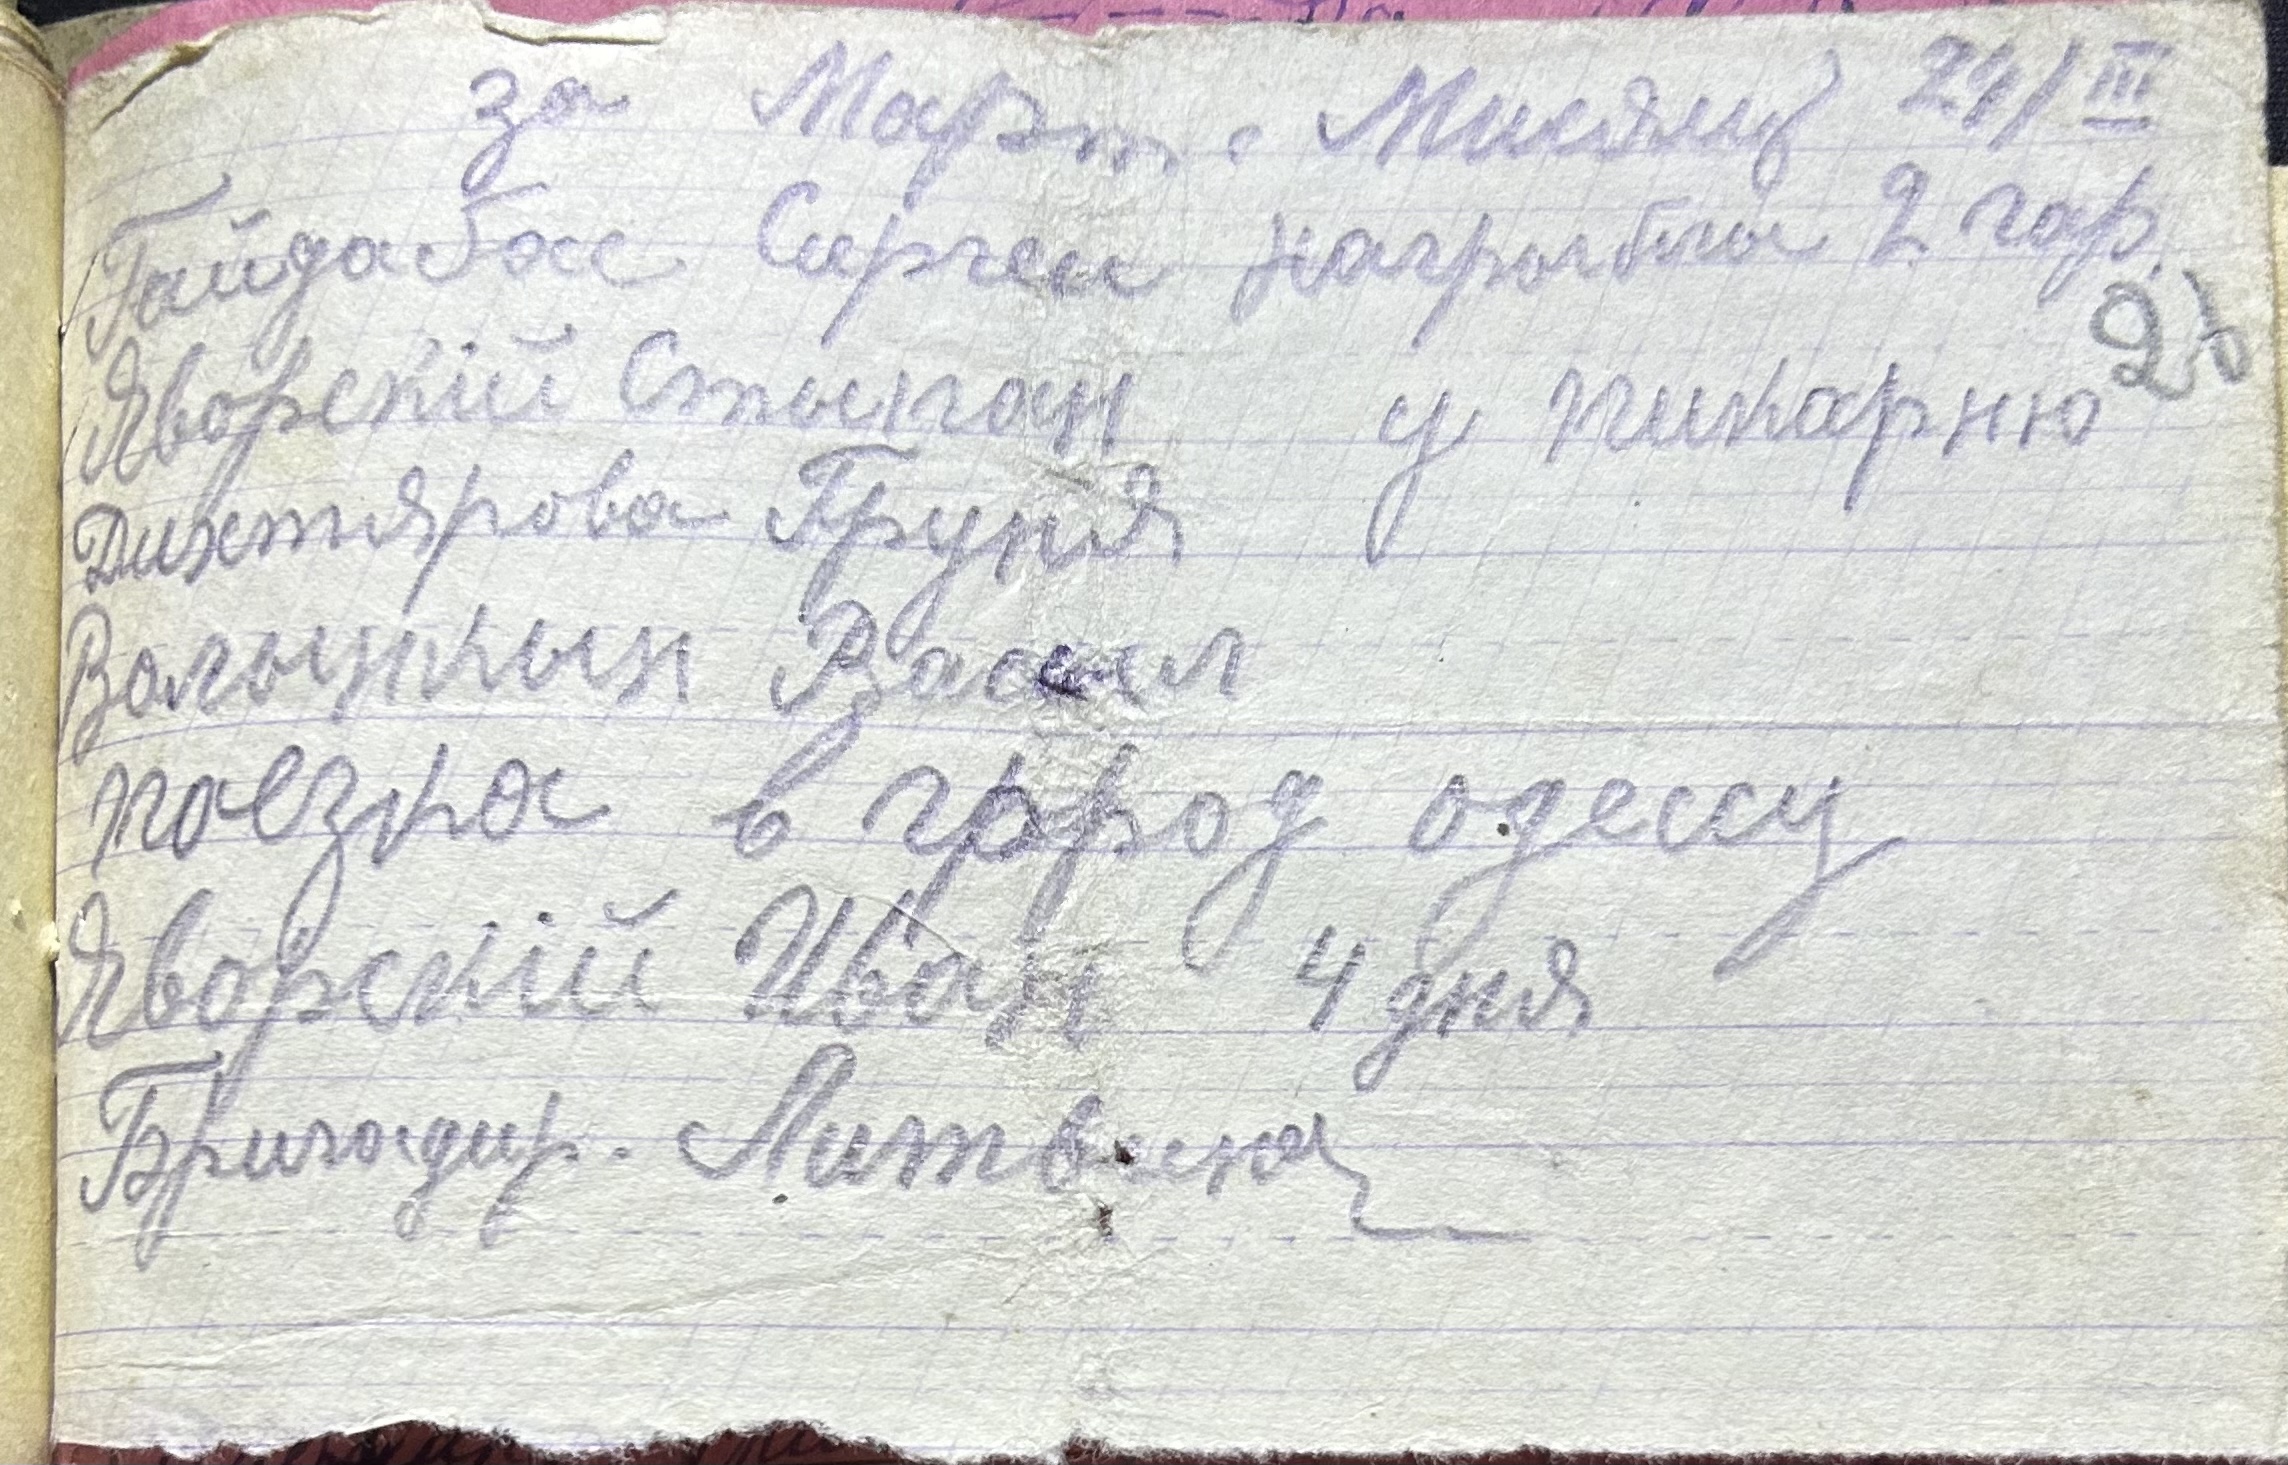 за Март. Мисяц 24/III
Гайдабас Сиргеи награбли 2 гар.
Яворский Стыпан у пикарню
Дихтярова Груня
Волынкын Васил
поезка в город одессу
Яворский Иван 4 дня
Бригадир. Литвин